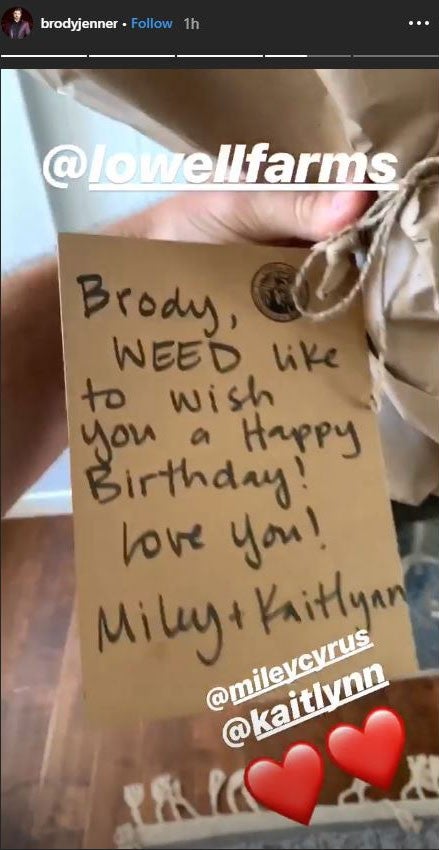 brodyjenner • Follow 1h
@lowellfarms
Brody,
WEED like
to wish
you a Happy
Birthday!
love you!
Miley + Kaitlynn
@mileycyrus
@kaitlynn